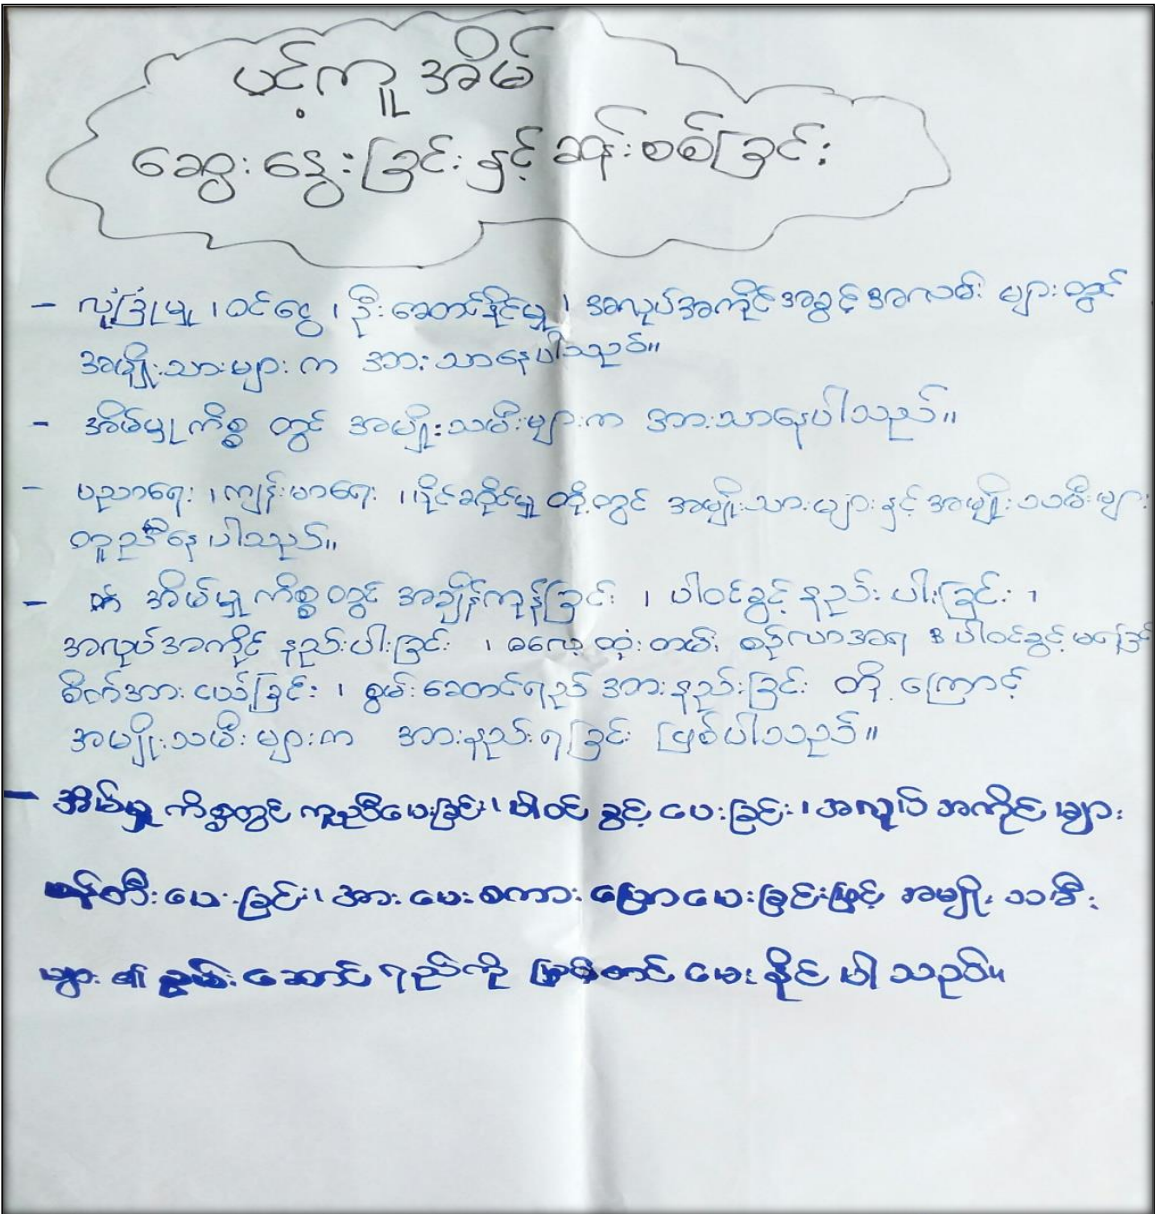 ပင့်ကူအိမ်
ဆွေးနွေးခြင်းနှင့် ဆန်းစစ်ခြင်း
- လုံခြုံမှု၊ ဝင်ငွေ၊ ဦးဆောင်နိုင်မှု၊ အလုပ်အကိုင်အခွင့်အလမ်းများတွင်
အမျိုးသားများက အားသာနေပါသည်။
- အိမ်မှုကိစ္စ တွင် အမျိုးသမီးများက အားသာနေပါသည်။
- ပညာရေး၊ ကျန်းမာရေး၊ ပိုင်ဆိုင်မှု တို့တွင် အမျိုးသားများနှင့် အမျိုးသမီးများ
တူညီနေပါသည်။
- အိမ်မှုကိစ္စတွင် အချိန်ကုန်ခြင်း၊ ပါဝင်ခွင့်နည်းပါးခြင်း၊
အလုပ်အကိုင် နည်းပါးခြင်း၊ ဓလေ့ထုံးတမ်း စဉ်လာအရ ပါဝင်ခွင့်
စိတ်အားငယ်ခြင်း၊ စွမ်းဆောင်ရည် အားနည်းခြင်း တို့ကြောင့်
အမျိုးသမီးများက အားနည်းရခြင်း ဖြစ်ပါသည်။
- အိမ်မှုကိစ္စတွင် ကူညီပေးခြင်း၊ ပါဝင်ခွင့်ပေးခြင်း၊ အလုပ်အကိုင်များ
ဖန်တီးပေးခြင်း၊ အားပေးစကားပြောပေးခြင်းဖြင့် အမျိုးသမီး
များ၏ စွမ်းဆောင်ရည်ကို မြှင့်တင်ပေးနိုင်ပါသည်။